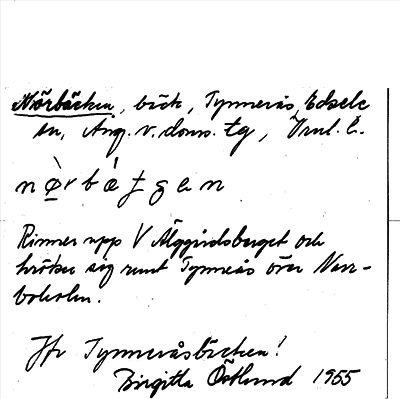 Nörbäcken, bäck, Tynnerås, Edsele
sn, Ång. v. doms. tg, Vnl. l.
Rinner upp V Älggårdsberget och
kröker sig runt Tynnerås över Norr-
boholm.
Jfr Tynneråsbäcken!
Birgitta Östlund 1955